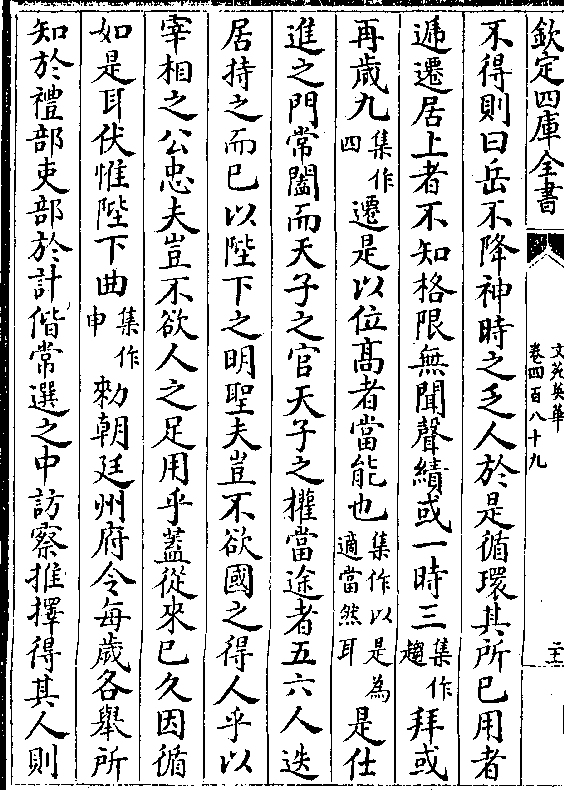 欽定四庫全書
文苑英華
卷四百八十九
二十
不得則曰岳不降神時之乏人於是循環其所已用者
遞遷居上者不知格限無聞聲績或一時三集作趨拜或
再歲九集作四遷是以位髙者當能也集作以是為適當然耳是仕
進之門常闔而天子之官天子之權當途者五六人迭
居持之而已以陛下之明聖夫豈不欲國之得人乎以
宰相之公忠夫豈不欲人之足用乎葢從來已久因循
如是耳伏惟陛下曲集作申勑朝廷州府令每歲各舉所
知於禮部吏部於計偕常選之中訪察推擇得其人則